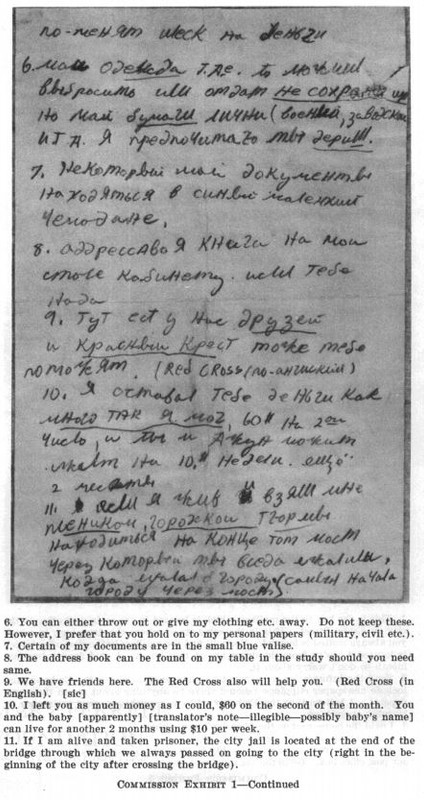 по-менят чек на деньги
6. мои одежда т.д.е. то можеш
выбросить или отдат не сохраняй
но мои бумаги лични (военый, заводской
и т.д. я предпочитаго ты держиш.
7. Некоторвый мой документвы
находяться в синвый маленкий
чемодане,
8. аддрессавая книга на мои
столе кабинету. если тебе
нада
9. Тут ест у нас друзей
и Красный Крест тоже тебе
поможят. (RED CROSS/по-английский)
10. Я оставал тебе деньги как
много так я мог, 60# на 2ои
число, и ты и
на 10.# недели. ещё
2 месяты
11. если я жив и взяли мне
городской
находиться на конце тот мост
через которвый твы всегда
когда городу (самый начала
городу через мост)
6. You can either throw out or give my clothing etc. away. Do not keep these.
However, I prefer that you hold on to my personal papers (military, civil etc.).
7. Certain of my documents are in the small blue valise.
8. The address book can be found on my table in the study should you need
same.
9. We have friends here. The Red Cross also will help you. (Red Cross (in
English). [sic]
10. I left you as much money as I could, $60 on the second of the month. You
and the baby [apparently] [translator's note—illegible—possibly baby's name]
can live for another 2 months using $10 per week.
11. If I am alive and taken prisoner, the city jail is located at the end of the
bridge through which we always passed on going to the city (right in the be-
ginning of the city after crossing the bridge).
COMMISSION EXHIBIT 1—Continued